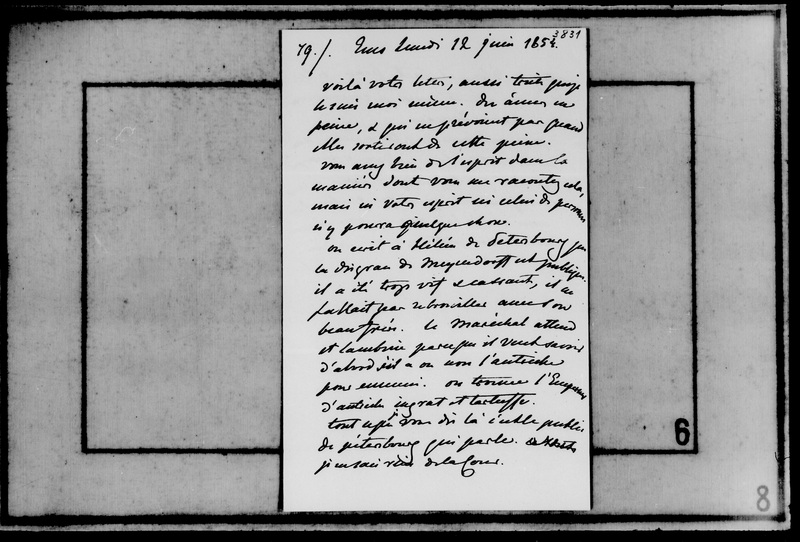 3831
79./. Ems lundi 12 juin 1854.
voilà votre lettre, aussi triste que je
le suis moi même. Des âmes en
peine, & qui ne prévoient pas quand
elles sortiront de cette peine.
vous avez bien de l'esprit dans la
manière dont vous me racontez cela,
mais ni votre esprit ni celui de personne
n'y pourra quelque chose.
on écrit à Hélène de Petersbourg que
la disgrace de Meyendorff est publique.
il a été trop vif & cassant, il ne
fallait pas se brouiller avec son
beau frère. le Maréchal attend
et lambine parce qu'il veut savoir
d'abord s'il a ou non l'autriche
pour ennemi. on trouve l'Empereur
d'autriche ingrat et tartuffe.
tout ce que je vous dis là c'est le public
de pétersbourg qui parle.
je ne sais rien de la Cour.
6
8